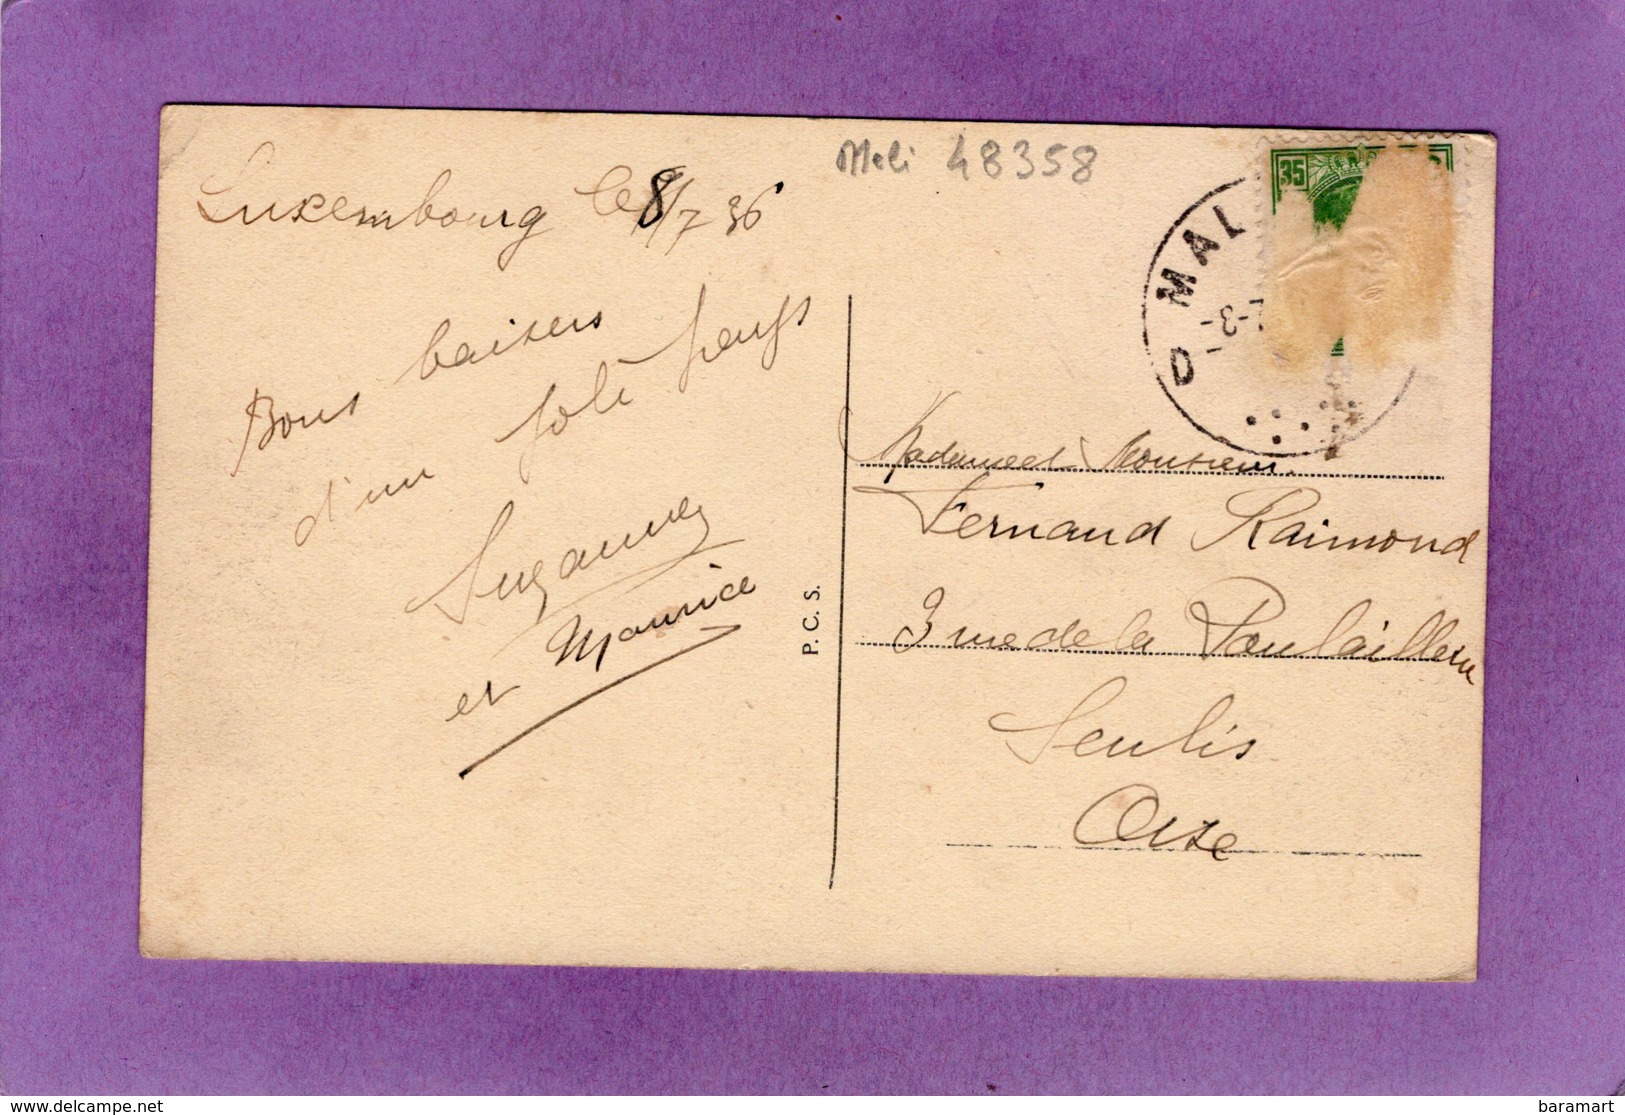 Luxembourg le 8/7 36
Bons baisers
d'un joli pays
Suzanne
et Maurice
P.C.S.
Meli 48358
35
D MAL
-3-7
Monsieur
Fernand Raimond
3 rue de la Poulaillerie
Senlis
Oise
delcampe.net
baramart